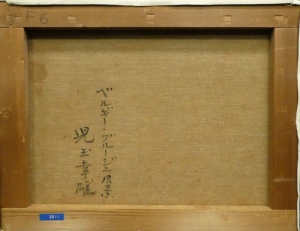 F6
ベルギー・ブルージュ風景
児玉幸雄